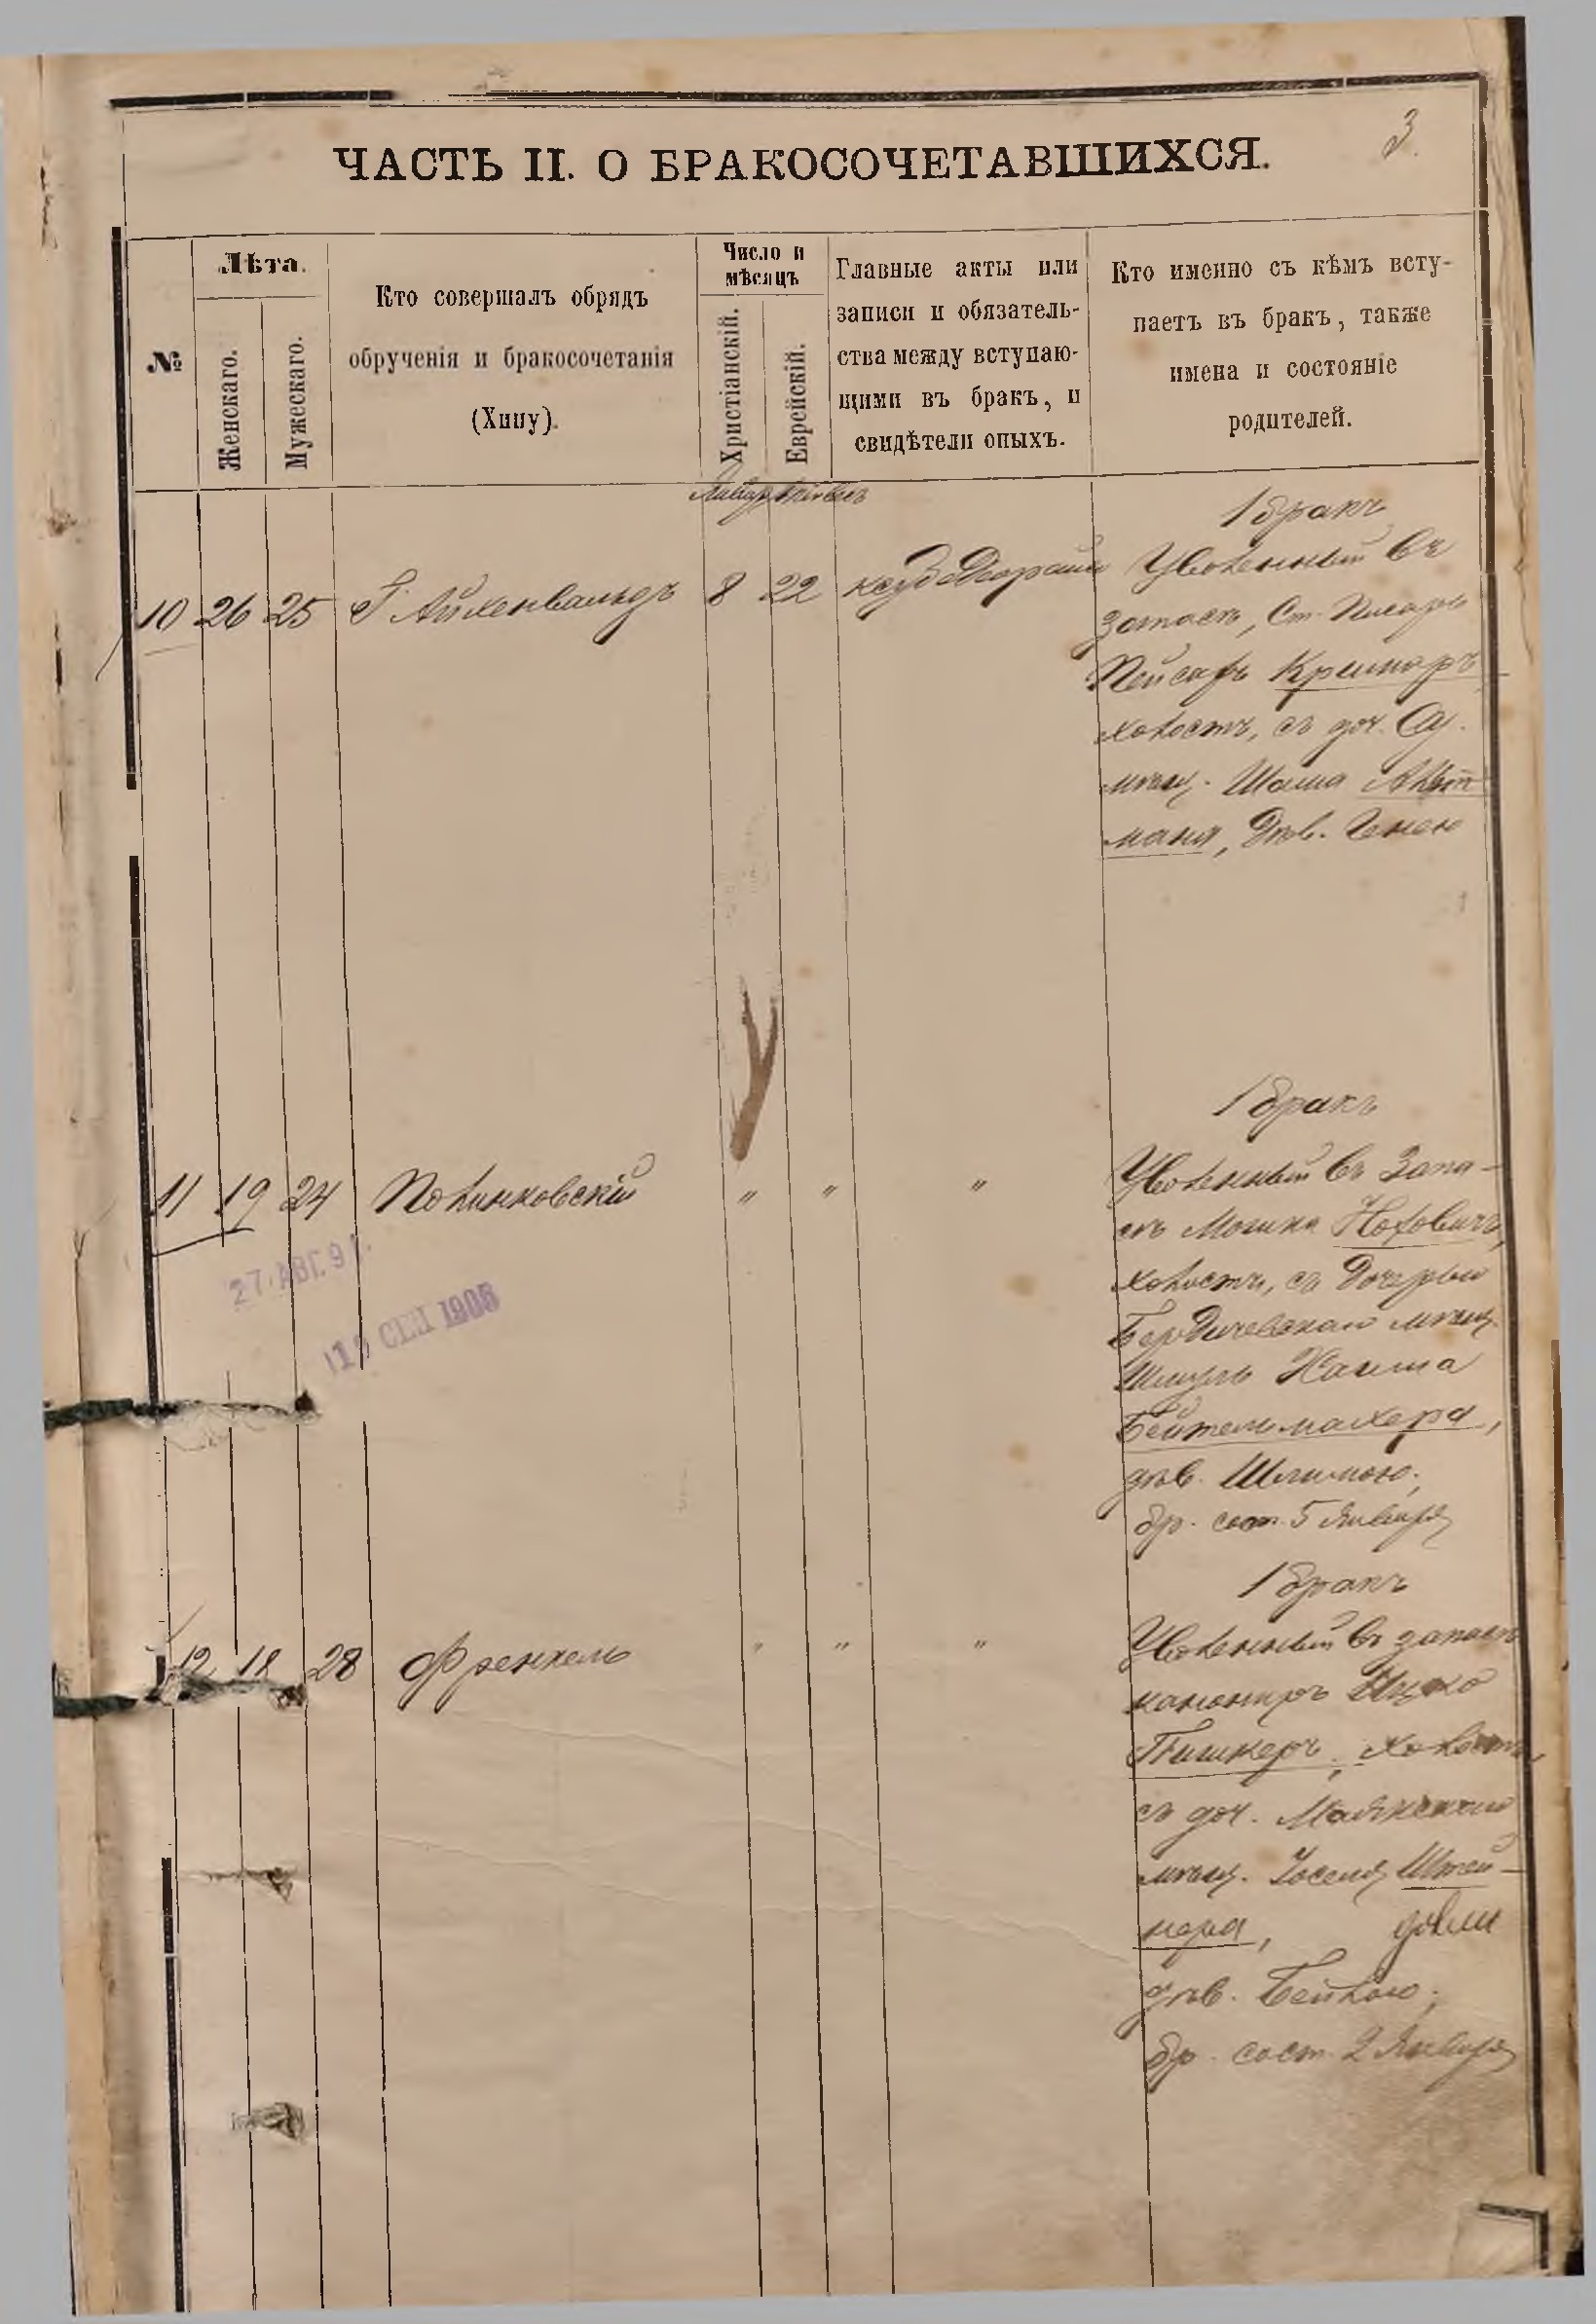 3.
ЧАСТЬ II. О БРАКОСОЧЕТАВШИХСЯ.
№
Лѣта.
Женскаго.
Мужескаго.
Кто совершалъ обрядъ
обрученія и бракосочетанія
(Хипу).
Число и
мѣсяцъ
Христіанскій.
Еврейскій.
Главные акты или
записи и обязатель-
ства между вступаю-
щими въ бракъ, и
свидѣтели оныхъ.
Кто именно съ кѣмъ всту-
паетъ въ бракъ, также
имена и состояніе
родителей.
10 26 25 Г Айхенвальдъ 8 22
1 бракъ
Уволенный въ
запасъ, Ст. Писарь
Пейсахъ Кримеръ
холостъ, съ доч.
мѣщ. Шама Альт
мана, Дѣв. Генею
11 19 24 Полинковскій " " "
1 бракъ
Уволенный въ Запа-
съ Мошка Нотовичъ,
холостъ, съ Дочерью
Бердичевскаго мѣщ.
Шмуль Хаима
Бейтельмахера,
дѣв. Шлимою;
бр. сост. 5 Января
27. АВГ. 9
СЕН 1905
12 18 28 Френкель " " "
1 бракъ
Уволенный въ запасъ
канониръ Ицко
Тишкеръ, холостъ,
съ доч.
мѣщ. Іоселя Штей-
нера,
дѣв. Бейлою;
бр. сост. 2 Января